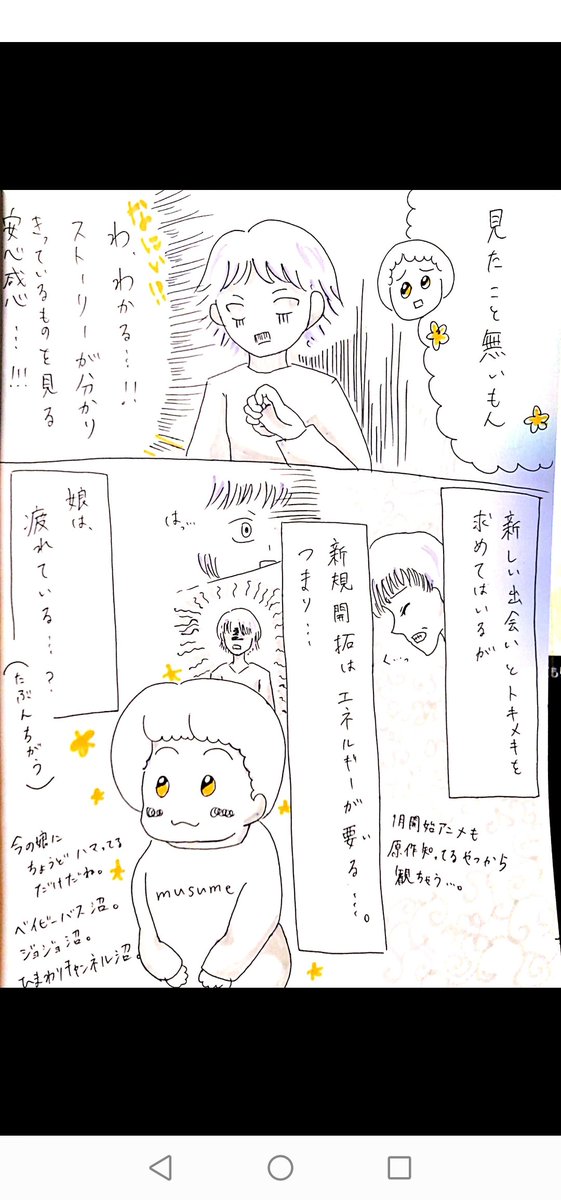 見たこと無いもん
なにい!!
わ、わかる…!!
ストーリーが分かり
きっているものを見る
安心感…!!!
新しい出会いとトキメキを
求めてはいるが
く…っ
1月開始アニメも
原作知ってるやつから
観ちゃう…。
新規開拓はエネルギーが要る…。
い
つまり…
はっ…
娘は、
疲れている…?
(たぶんちがう)
musume
今の娘に
ちょうどハマってる
だけだね。
ベイビーバス沼。
ジョジョ沼。
ひまわりチャンネル沼。